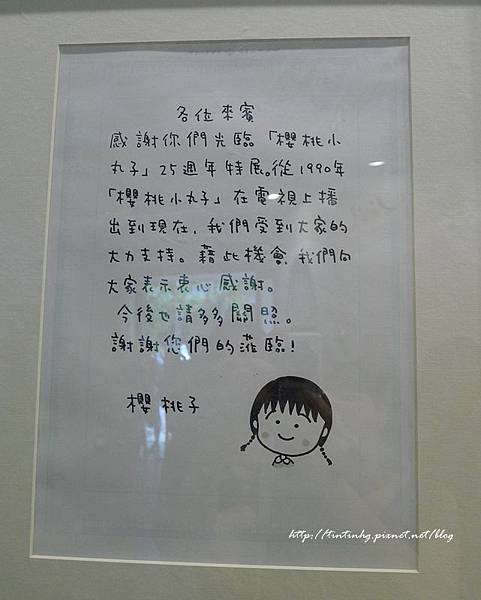 各位來賓
感謝你們光臨「櫻桃小
丸子」25週年特展。從1990年
「櫻桃小丸子」在電視上播
出到現在，我們受到大家的
大力支持。藉此機會，我們向
大家表示衷心感謝。
今後也請多多關照。
謝謝您們的蒞臨！
櫻桃子
http://tintinhg.pixnet.net/blog